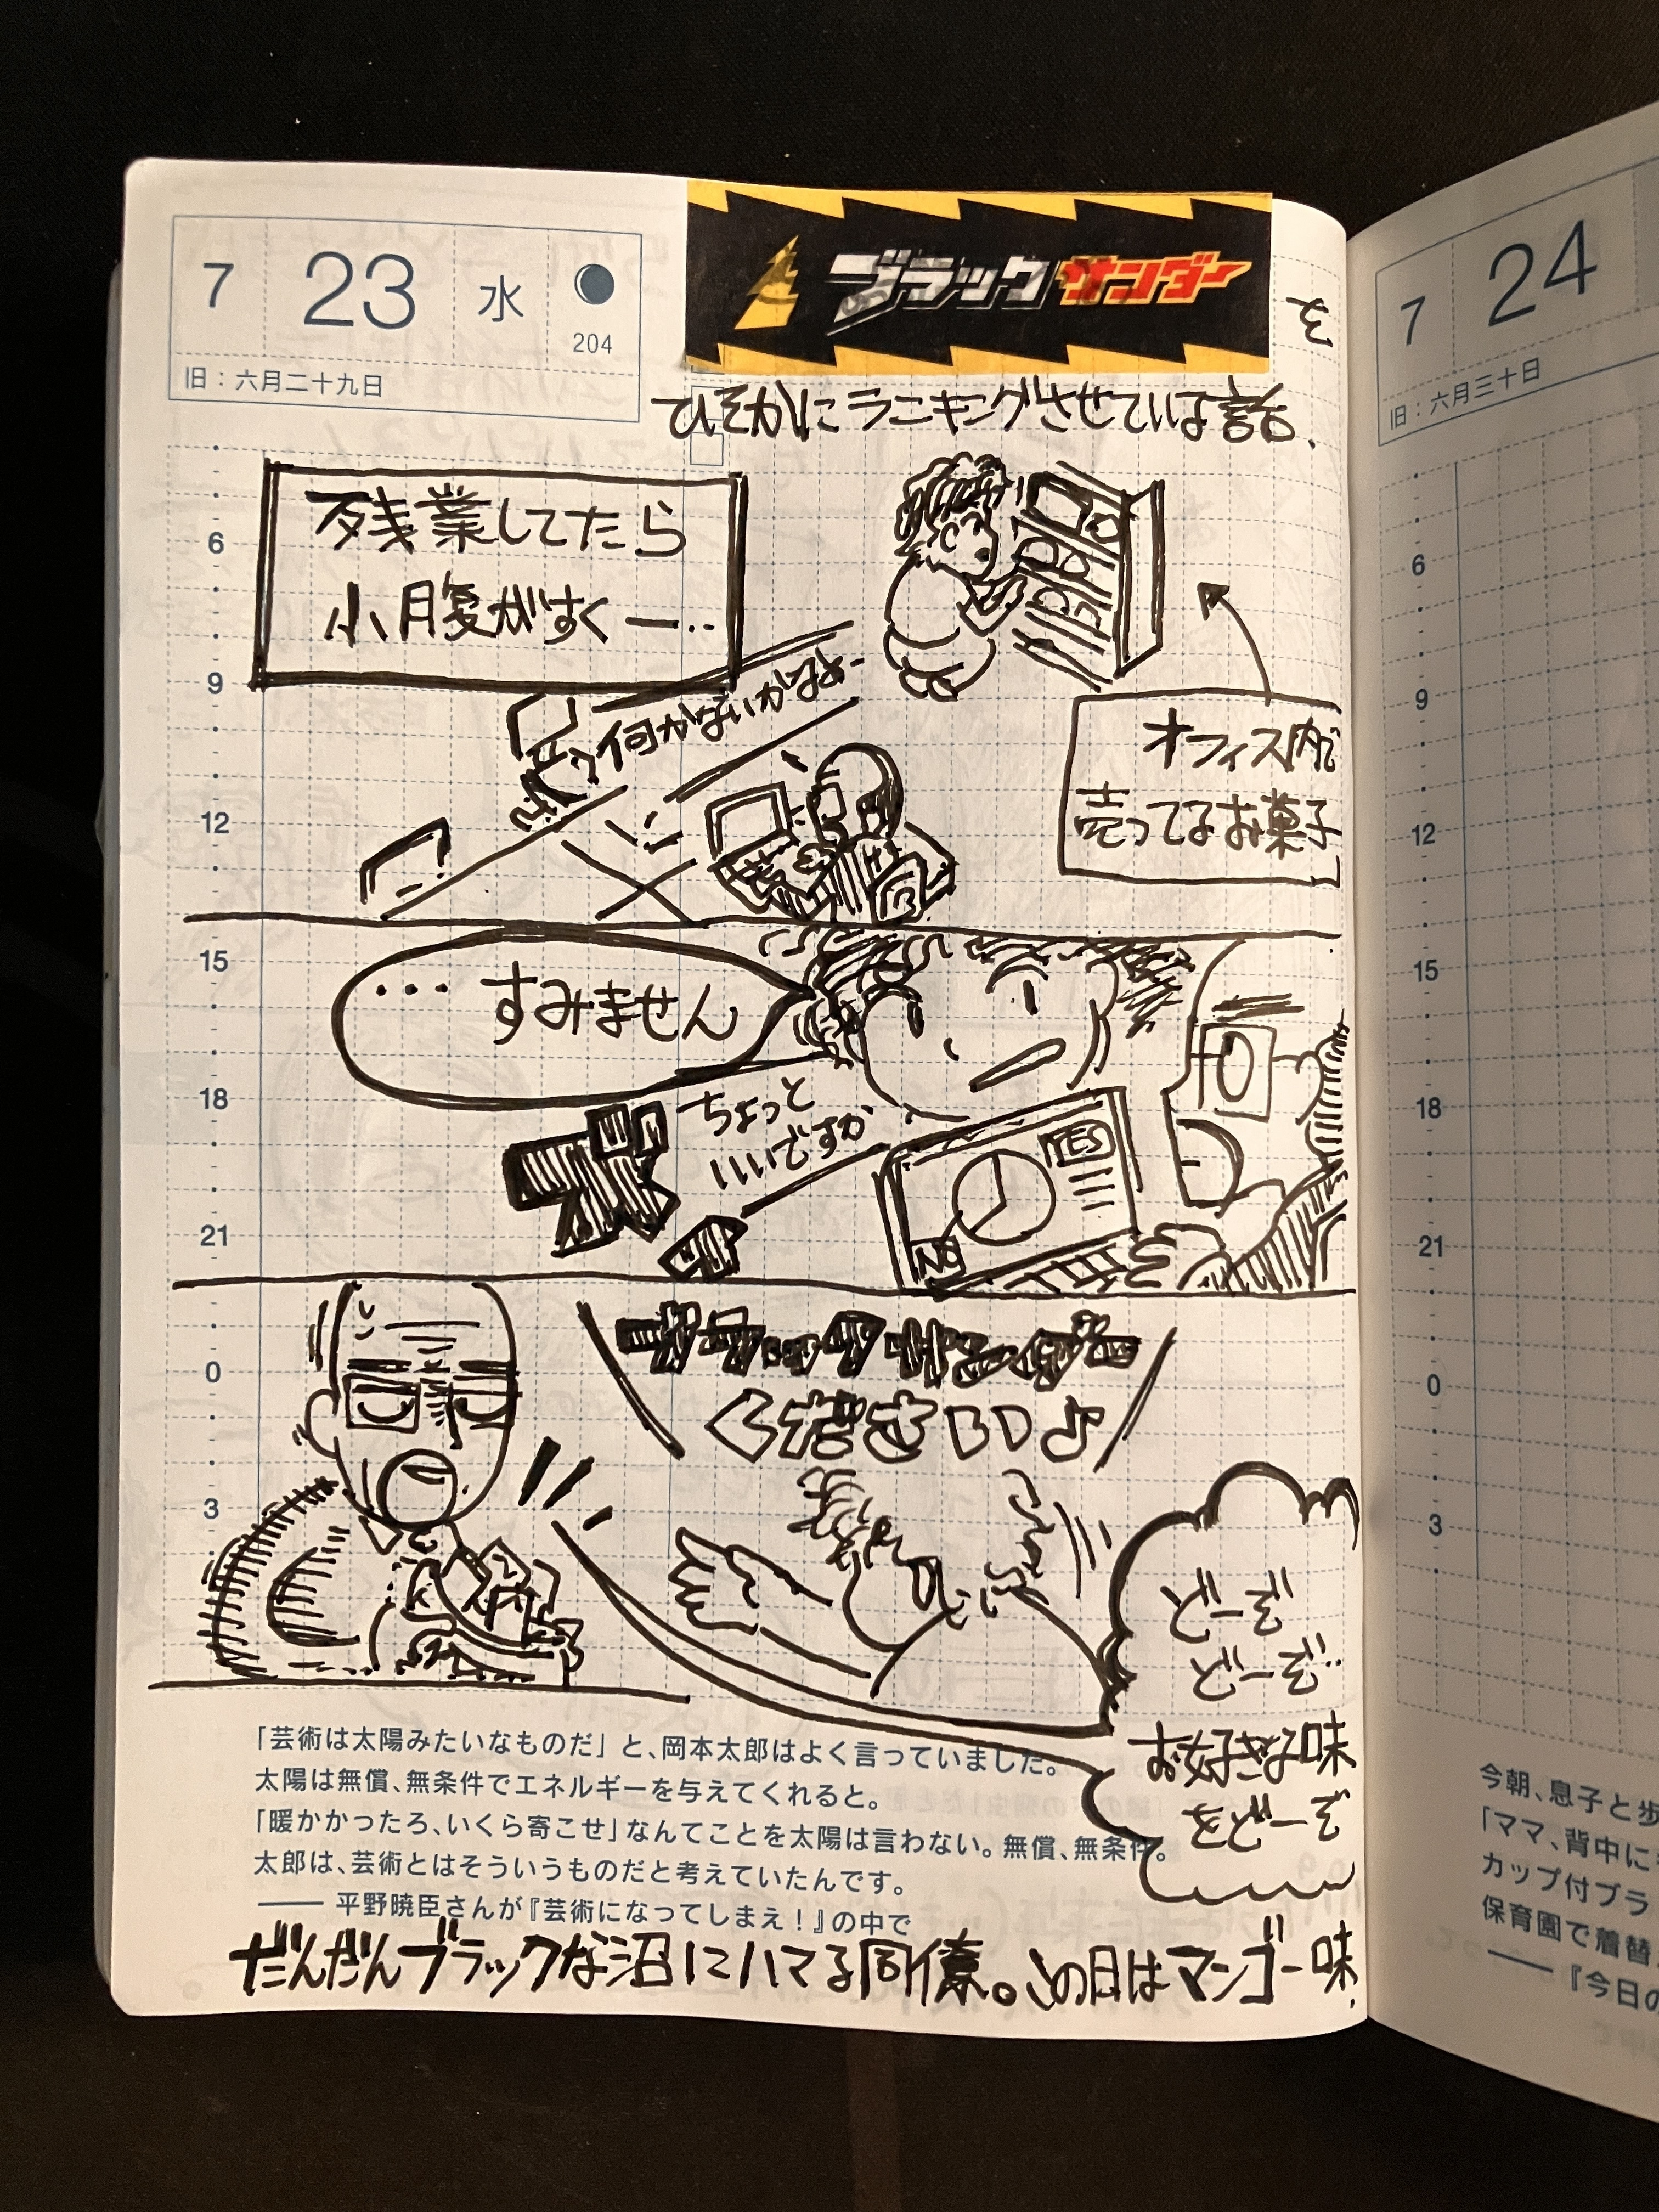 7 23 水
204
旧：六月二十九日
ブラックサンダー を
ひそかにランキングさせている話.
残業してたら
小腹がすくー‥
何かないかなぁー
オフィス内で
売ってるお菓子
… すみません
ちょっと
いいですか
ズ
YES
NO
ブラックサンダー
ください♪
どーぞ
どーぞ
お好きな味
をどーぞ
6
9
12
15
18
21
0
3
「芸術は太陽みたいなものだ」と、岡本太郎はよく言っていました。
太陽は無償、無条件でエネルギーを与えてくれると。
「暖かかったろ、いくら寄こせ」なんてことを太陽は言わない。無償、無条件。
太郎は、芸術とはそういうものだと考えていたんです。
―― 平野暁臣さんが『芸術になってしまえ！』の中で
だんだんブラックな沼にハマる同僚。この日はマンゴー味.
7 24
旧：六月三十日
6
9
12
15
18
21
0
3
今朝、息子と歩
「ママ、背中に
カップ付ブラ
保育園で着替
――『今日の